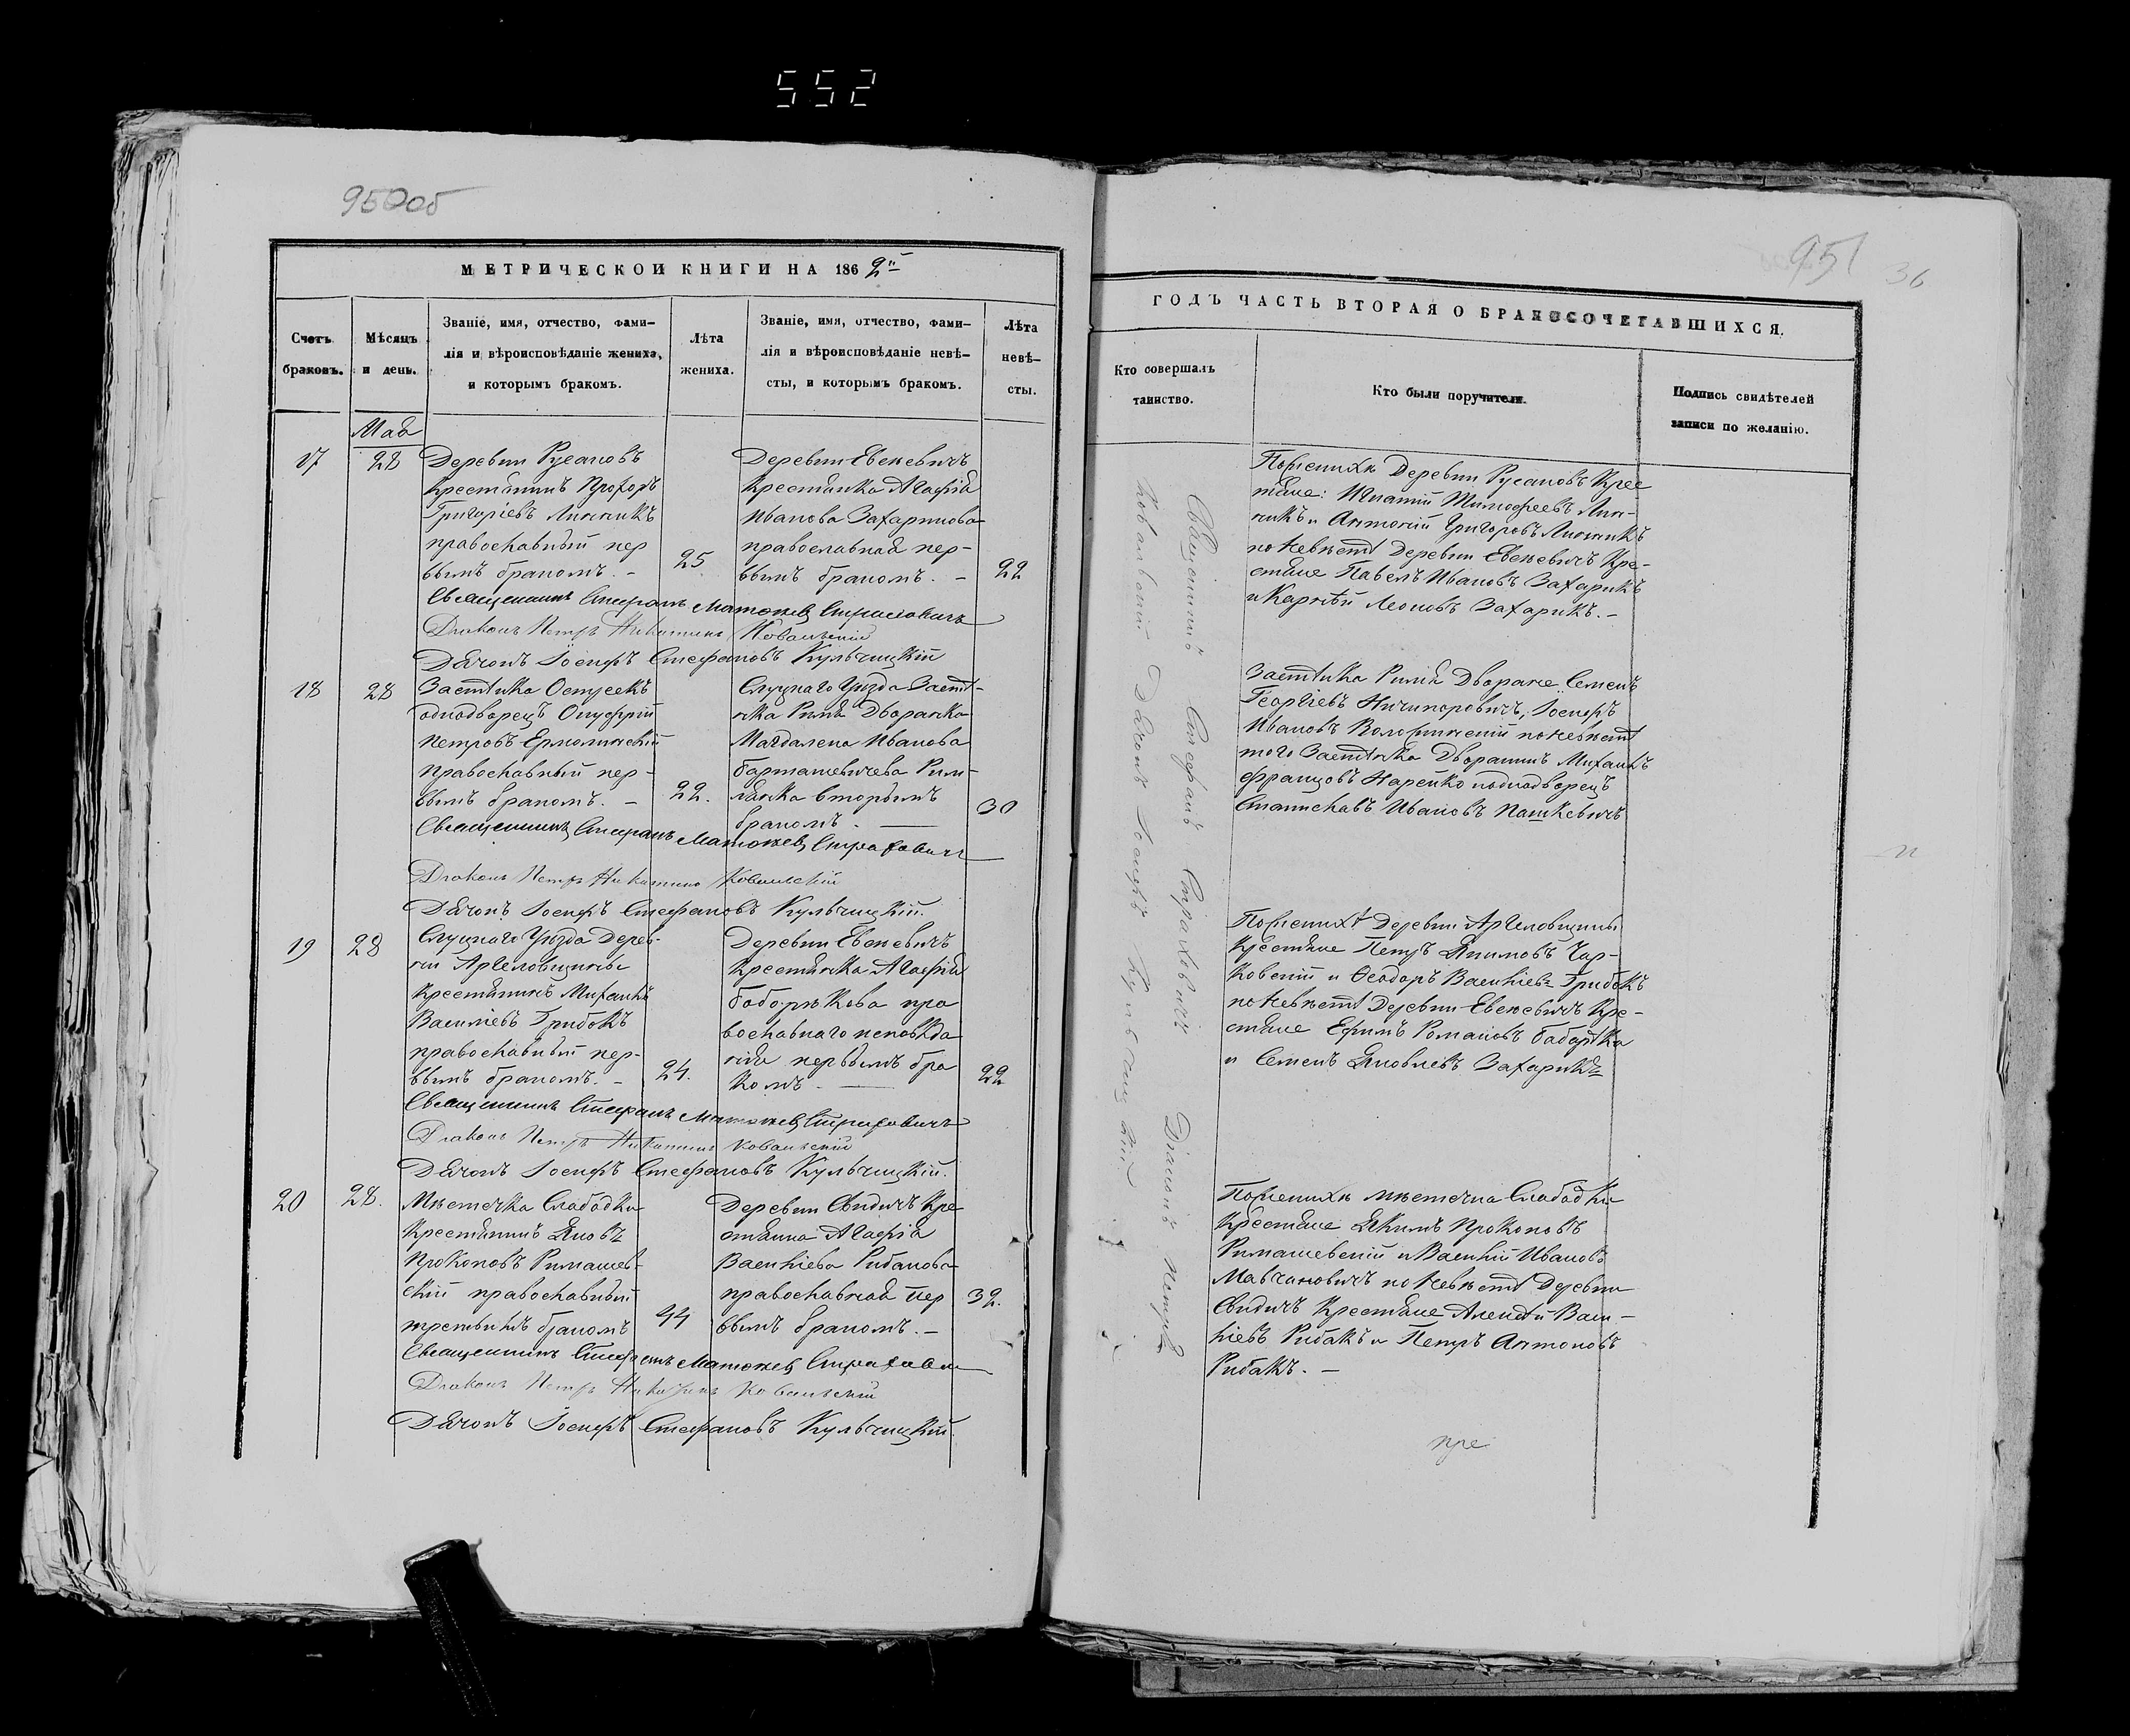 552
950об
МЕТРИЧЕСКОЙ КНИГИ НА 1862й
Счетъ браковъ.
Мѣсяцъ и день.
Званіе, имя, отчество, фами-
лія и вѣроисповѣданіе жениха,
и которымъ бракомъ.
Лѣта
жениха.
Званіе, имя, отчество, фами-
лія и вѣроисповѣданіе невѣ-
сты, и которымъ бракомъ.
Лѣта
невѣ-
сты.
Маія
17
28
Деревни Русановъ
Крестьянинъ Прохоръ
Григоріевъ Линникъ
православный пер
вымъ бракомъ. –
25
Деревни Евсеевичъ
Крестьянка Агафія
Иванова Захарикова
православная пер-
вымъ бракомъ. –
22
Священникъ Стефанъ Матѳеевъ Страховичъ
Діаконъ Петръ Никитинъ Ковалевскій
Дьячокъ Іосифъ Стефановъ Кульчицкій
18
28
Застѣнка Остреекъ
однодворецъ Онуфрій
Петровъ Ермолинскій
православный пер-
вымъ бракомъ. –
22.
Слуцкаго Уѣзда Застѣ-
нка Рымя Дворянка
Магдалена Иванова
Барташевичева Рим-
лянка вторымъ
бракомъ. –
30
Священникъ Стефанъ Матѳеевъ Страховичъ
Діаконъ Петръ Никитинъ Ковалевскій
Дьячокъ Іосифъ Стефановъ Кульчицкій.
19
28
Слуцкаго Уѣзда Дерев-
ни Аргеловщины
Крестьянинъ Михаилъ
Василіевъ Грибокъ
православный пер-
вымъ бракомъ. –
24.
Деревни Евсеевичъ
Крестьянка Агафія
Бабарѣкова пра
вославнаго исповѣда
нія первымъ бра
комъ. –
22
Священникъ Стефанъ Матѳеевъ Страховичъ
Діаконъ Петръ Никитинъ Ковалевскій
Дьячокъ Іосифъ Стефановъ Кульчицкій.
20
28.
Мѣстечка Слабодки
Крестьянинъ Яковъ
Прокоповъ Римашев-
скій православный
третьимъ бракомъ
44
Деревни Свидичъ Кре
стьянка Агафія
Василіева Рибакова
православная пер
вымъ бракомъ. –
32.
Священникъ Стефанъ Матѳеевъ Страхович
Діаконъ Петръ Никитинъ Ковалевскій
Дьячокъ Іосифъ Стефановъ Кульчицкій.
951
36
ГОДЪ ЧАСТЬ ВТОРАЯ О БРАКОСОЧЕТАВШИХСЯ.
Кто совершалъ
таинство.
Кто были поручители.
Подпись свидѣтелей
записи по желанію.
Священникъ Стефанъ Страховичъ Діаконъ Петръ
Ковалевскій Дьячокъ Іосифъ Кульчицкій
По женихѣ Деревни Русановъ Крес
тьяне: Игнатій Тимофеевъ Лин-
никъ и Антоній Григоровъ Линникъ
по невѣстѣ Деревни Евсеевичъ Кре-
стьяне Павелъ Ивановъ Захарикъ
и Карнѣй Леоновъ Захарикъ. –
Застѣнка Рымя Дворяне Семенъ
Георгіевъ Ничипоровичъ, Іосифъ
Ивановъ Волосинскій по невѣстѣ
того Застѣнка Дворянинъ Михаилъ
Францовъ Нарейко и однодворецъ
Станиславъ Ивановъ Пашкевичъ
По женихѣ Деревни Аргеловщины
Крестьяне Петръ Якимовъ Чар-
ковскій и Ѳеодоръ Василіевъ Грибокъ
по невѣстѣ Деревни Евсеевичъ Кре-
стьяне Ефимъ Романовъ Бабарѣка
и Семенъ Яковлевъ Захарикъ
По женихѣ мѣстечка Слабодки
Крестьяне Якимъ Прокоповъ
Римашевскій и Василій Ивановъ
Мавчановичъ по невѣстѣ Деревни
Свидичъ Крестьяне Алексѣй Васи-
ліевъ Рибакъ и Петръ Антоновъ
Рибакъ. –
пре